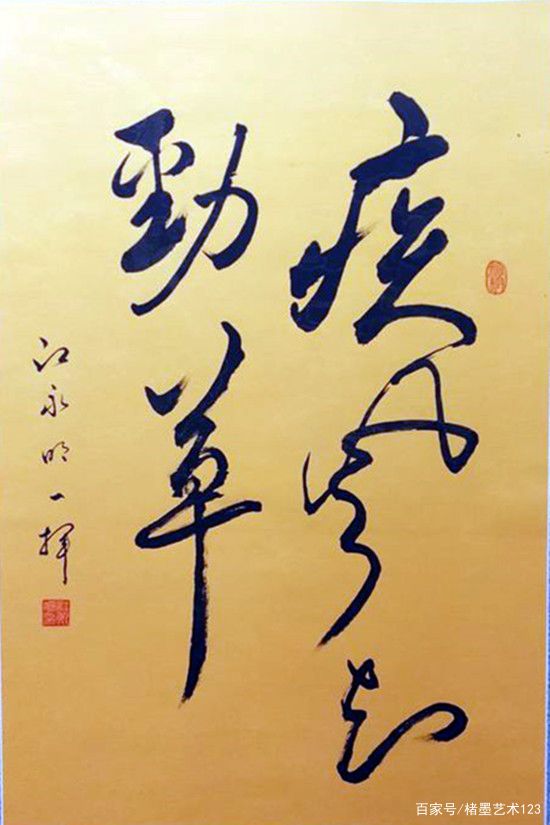 疾風知
勁草
江永明一揮
百家号/楮墨艺术123